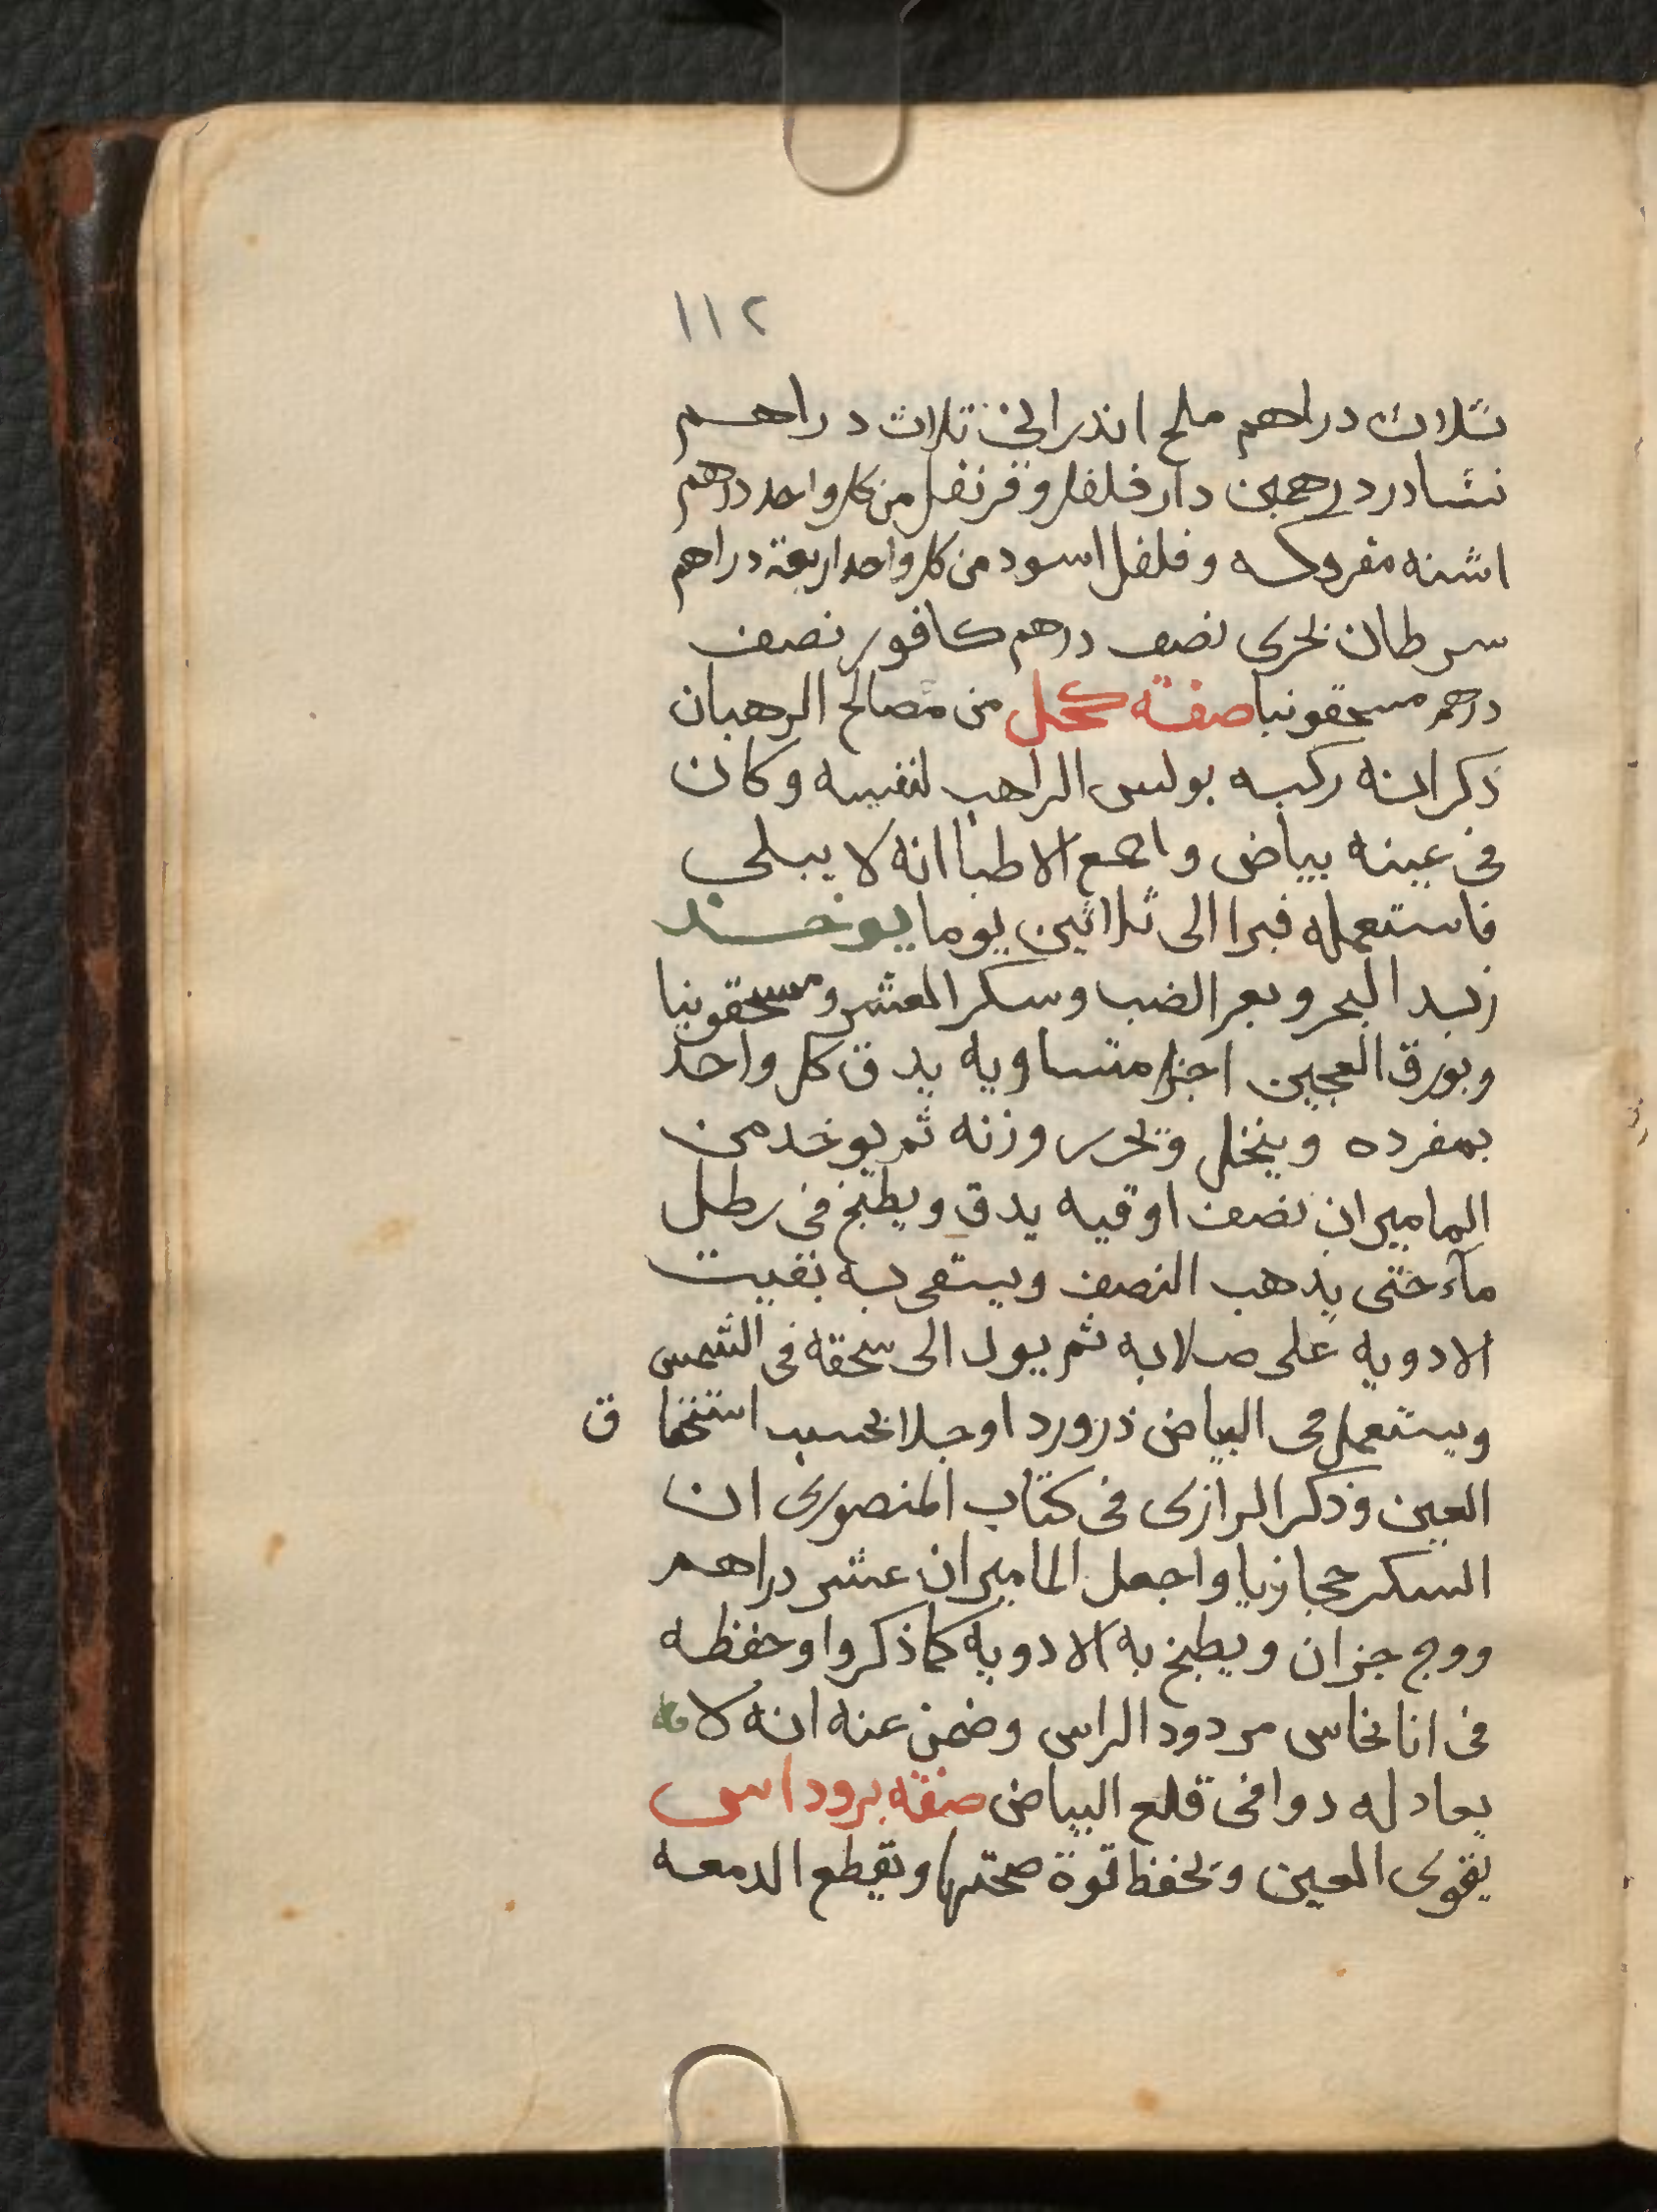 ١١٢
ثلاث دراهم ملح اندرانى ثلاث دراهم
نشادر درهمين دار فلفل وقرنفل من كل واحد درهم
اشنه مفروكه وفلفل اسود من كل واحد اربعة دراهم
سرطان بحرى نصف درهم كافور نصف
درهم مسحقونيا صفة كحل من مصالح الرهبان
ذكر انه ركبه بولس الراهب لنفسه وكان
فى عينه بياض واجمع الاطبا انه لا يبلى
فاستعمله فبرا الى ثلاثين يوما يوخد
زبد البحر وبعر الضب وسكر العشر ومسحقونيا
وبورق العجين اجزا متساويه يدق كل واحد
بمفرده وينخل وتحرر وزنه ثم يوخد من
الماميران نصف اوقيه يدق ويطبخ فى رطل
مآء حتى يذهب النصف ويسقى به بقيت
الادويه على صلابه ثم يول الى سحقه فى الشمس
ويستعمل فى البياض ذرورد اوجلا بحسب استحقا ق
العين وذكر الرازى فى كتاب المنصورى ان
السكر حجازيا واجعل الماميران عشر دراهم
ووج جزان ويطبخ به الادويه كما ذكروا وحفظه
فى انا نحاس مردود الراس وضمن عنه انه لا
يعادله دوا فى قلع البياض صفه برود اسى
يقوى العين وتحفظ قوة صحتها ويقطع الدمعه